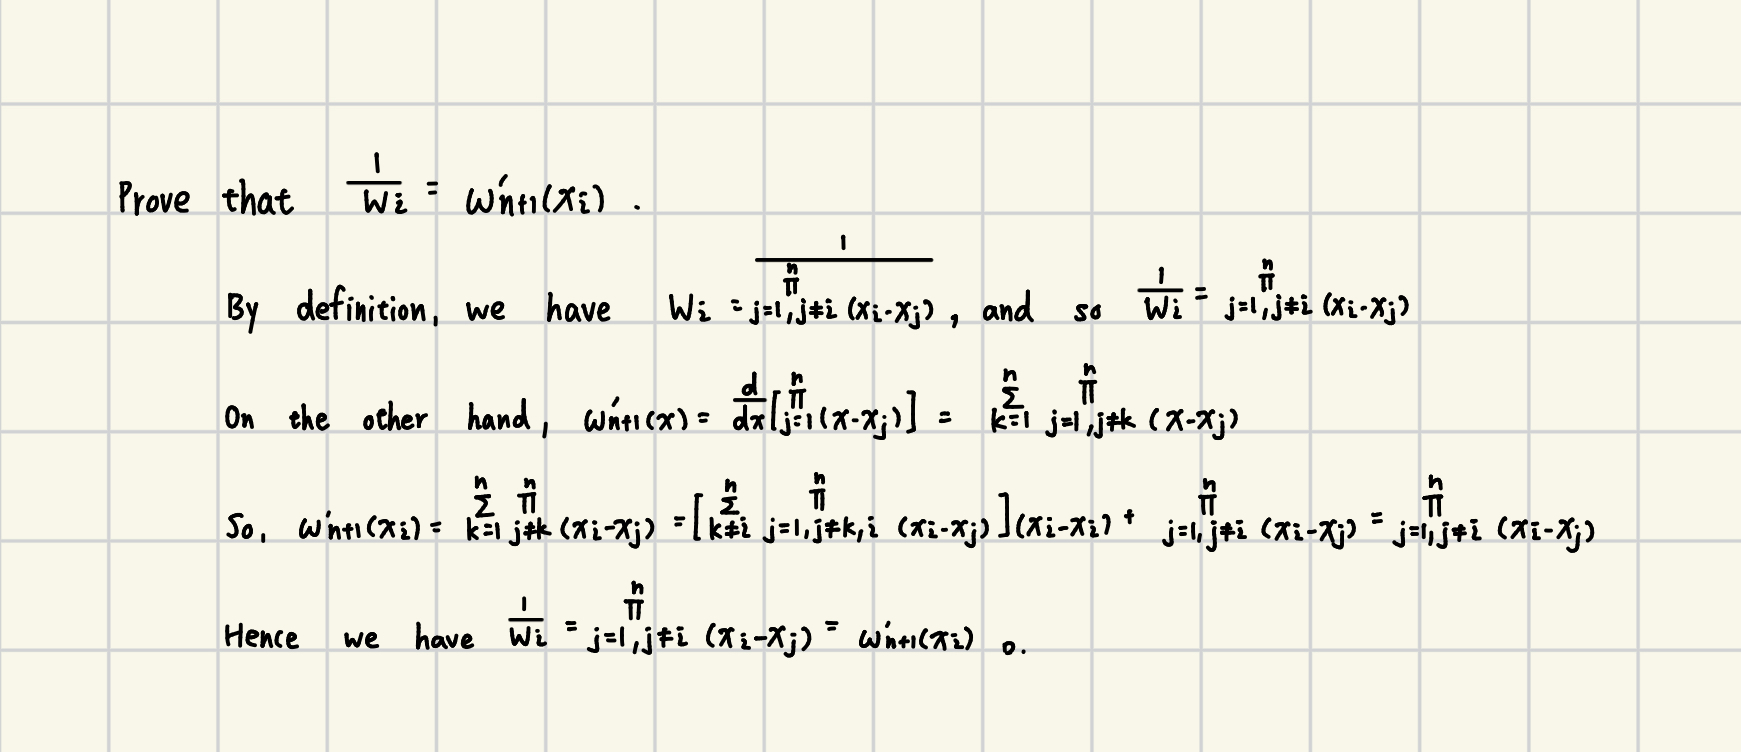 Prove that $\frac{1}{W_i} = \omega'_{n+1}(x_i)$ .
By definition, we have $W_i = \frac{1}{\prod_{j=1, j \neq i}^{n} (x_i - x_j)}$ , and so $\frac{1}{W_i} = \prod_{j=1, j \neq i}^{n} (x_i - x_j)$
On the other hand, $\omega'_{n+1}(x) = \frac{d}{dx} [\prod_{j=1}^{n} (x - x_j)] = \sum_{k=1}^{n} \prod_{j=1, j \neq k}^{n} (x - x_j)$
So, $\omega'_{n+1}(x_i) = \sum_{k=1}^{n} \prod_{j \neq k}^{n} (x_i - x_j) = [\sum_{k \neq i}^{n} \prod_{j=1, j \neq k, i}^{n} (x_i - x_j)] (x_i - x_i) + \prod_{j=1, j \neq i}^{n} (x_i - x_j) = \prod_{j=1, j \neq i}^{n} (x_i - x_j)$
Hence we have $\frac{1}{W_i} = \prod_{j=1, j \neq i}^{n} (x_i - x_j) = \omega'_{n+1}(x_i)$ □.